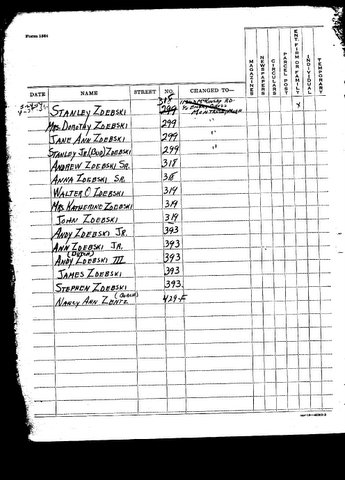 Form 1564
DATE NAME STREET NO. CHANGED TO— MAGAZINES NEWSPAPERS CIRCULARS PARCEL POST ENT. FIRM OR FAMILY INDIVIDUAL TEMPORARY
STANLEY ZDEBSKI 299 X
MRS. DOROTHY ZDEBSKI 299 "
JANE ANN ZDEBSKI 299 "
STANLEY JR (BUD) ZDEBSKI 299 "
ANDREW ZDEBSKI SR. 318
ANNA ZDEBSKI SR.
WALTER C. ZDEBSKI 319
MRS. KATHERINE ZDEBSKI 319
JOHN ZDEBSKI 319
ANDY ZDEBSKI JR. 393
ANN ZDEBSKI JR. 393
(BUTCH)
ANDY ZDEBSKI III 393
JAMES ZDEBSKI 393
STEPHEN ZDEBSKI 393
NANCY ANN 429-F